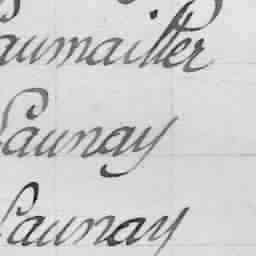 aumailler
Launay
Launay